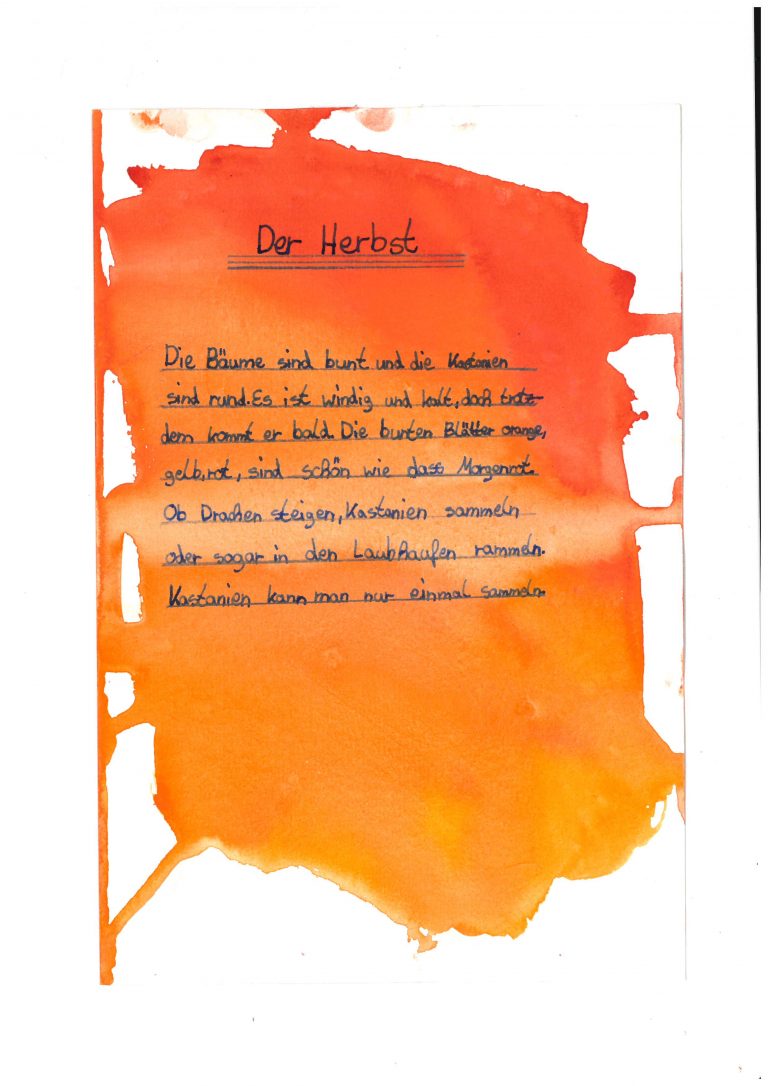 Der Herbst
Die Bäume sind bunt und die Kastanien
sind rund. Es ist windig und kalt, doch trotz-
dem kommt er bald. Die bunten Blätter orange,
gelb, rot, sind schön wie dass Morgenrot.
Ob Drachen steigen, Kastanien sammeln
oder sogar in den Laubhaufen rammeln.
Kastanien kann man nur einmal sammeln.